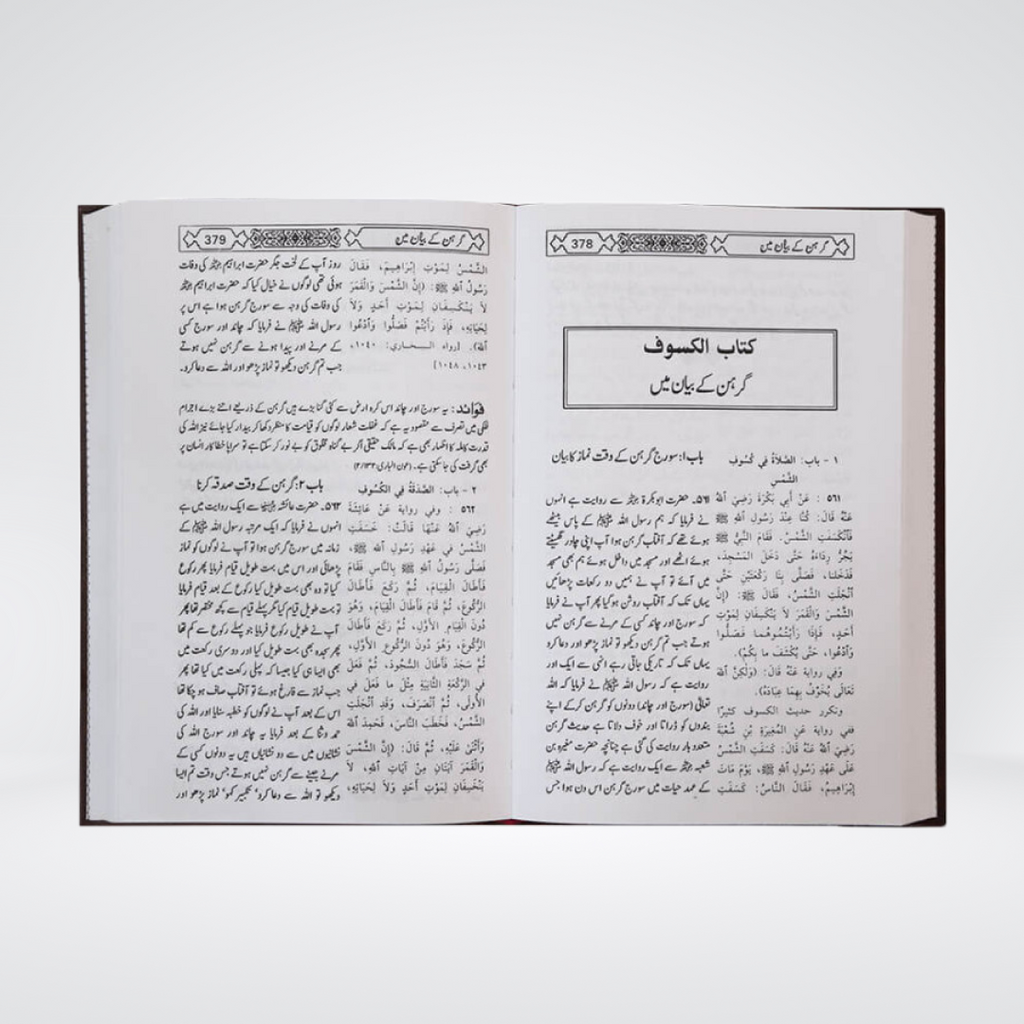 گرہن کے بیان میں
378
كتاب الكسوف
گرہن کے بیان میں
١ - باب: الصَّلاَةُ فِي كُسُوفِ
الشَّمْسِ
٥٦١ : عَنْ أَبِي بَكْرَةَ رَضِيَ اللهُ
عَنْهُ قَالَ: كُنَّا عِنْدَ رَسُولِ اللهِ ﷺ
فَٱنْكَسَفَتِ الشَّمْسُ. فَقَامَ النَّبِيُّ ﷺ
يَجُرُّ رِدَاءَهُ حَتَّى دَخَلَ المَسْجِدَ،
فَدَخَلْنَا، فَصَلَّى بِنَا رَكْعَتَيْنِ حَتَّى
ٱنْجَلَتِ الشَّمْسُ، فَقَالَ ﷺ: (إِنَّ
الشَّمْسَ وَالْقَمَرَ لاَ يَنْكَسِفَانِ لِمَوْتِ
أَحَدٍ، فَإِذَا رَأَيْتُمُوهُمَا فَصَلُّوا
وَٱدْعُوا، حَتَّى يُكْشَفَ ما بِكُمْ).
وَفي رواية عَنْهُ قَالَ: (وَلٰكِنَّ اللهَ
تَعَالَى يُخَوِّفُ بِهِمَا عِبَادَهُ).
وتكرر حديث الكسوف كثيرًا
ففي رواية عَنِ المُغِيرَةِ بْنِ شُعْبَةَ
رَضِيَ اللهُ عَنْهُ قَالَ: كَسَفَتِ الشَّمْسُ
عَلَى عَهْدِ رَسُولِ اللهِ ﷺ، يَوْمَ مَاتَ
إِبْرَاهِيمُ، فَقَالَ النَّاسُ: كَسَفَتِ
باب ۱: سورج گرہن کے وقت نماز کا بیان
۵۶۱. حضرت ابوبکرۃ رضی اللہ عنہ سے روایت ہے انہوں
نے فرمایا کہ ہم رسول اللہ ﷺ کے پاس بیٹھے
ہوئے تھے کہ آفتاب گرہن ہوا آپ اپنی چادر گھسیٹتے
ہوئے اٹھے اور مسجد میں داخل ہوئے ہم بھی مسجد
میں آئے تو آپ نے ہمیں دو رکعات پڑھائیں
یہاں تک کہ آفتاب روشن ہوگیا پھر آپ نے فرمایا
کہ سورج اور چاند کسی کے مرنے سے گرہن نہیں
ہوتے جب تم گرہن دیکھو تو نماز پڑھو اور دعا کرو
یہاں تک کہ تاریکی جاتی رہے انہی سے ایک اور
روایت ہے کہ رسول اللہ ﷺ نے فرمایا کہ اللہ
تعالیٰ (سورج اور چاند) دونوں کو گرہن کرکے اپنے
بندوں کو ڈراتا اور خوف دلاتا ہے حدیث گرہن
متعدد بار روایت کی گئی ہے چنانچہ حضرت مغیرہ بن
شعبہ رضی اللہ عنہ سے ایک روایت ہے کہ رسول اللہ ﷺ
کے عہد حیات میں سورج گرہن اس دن ہوا جس
گرہن کے بیان میں
379
الشَّمْسُ لِمَوْتِ إِبْرَاهِيمَ، فَقَالَ
رَسُولُ اللهِ ﷺ: (إِنَّ الشَّمْسَ وَالْقَمَرَ
لاَ يَنْكَسِفَانِ لِمَوْتِ أَحَدٍ وَلاَ
لِحَيَاتِهِ، فَإِذَا رَأَيْتُمْ فَصَلُّوا وَٱدْعُوا
اللهَ). [رواه البخاري: ١٠٤٠،
١٠٤٣، ١٠٤٨]
روز آپ کے لخت جگر حضرت ابراہیم رضی اللہ عنہ کی وفات
ہوئی تھی لوگوں نے خیال کیا کہ حضرت ابراہیم رضی اللہ عنہ
کی وفات کی وجہ سے سورج گرہن ہوا ہے اس پر
رسول اللہ ﷺ نے فرمایا کہ چاند اور سورج کسی
کے مرنے اور پیدا ہونے سے گرہن نہیں ہوتے
جب تم گرہن دیکھو تو نماز پڑھو اور اللہ سے دعا کرو.
فوائد: یہ سورج اور چاند اس کرہ ارض سے کئی گنا بڑے ہیں گرہن کے ذریعے اتنے بڑے اجرام
فلکی میں تصرف سے مقصود یہ ہے کہ غفلت شعار لوگوں کو قیامت کا منظر دکھا کر بیدار کیا جائے نیز اللہ کی
قدرت کاملہ کا اظہار بھی ہے کہ مالک حقیقی اگر بے گناہ مخلوق کو بے نور کر سکتا ہے تو سراپا خطاکار انسان پر
بھی گرفت کی جاسکتی ہے. (عون الباری: ۲/۱۳۲)
٢ - باب: الصَّدَقَةُ فِي الكُسُوفِ
٥٦٢ : وفي رواية عَنْ عَائِشَةَ
رَضِيَ اللهُ عَنْهَا قَالَتْ: خَسَفَتِ
الشَّمْسُ في عَهْدِ رَسُولِ اللهِ ﷺ،
فَصَلَّى رَسُولُ اللهِ ﷺ بِالنَّاسِ فَقَامَ
فَأَطَالَ الْقِيَامَ، ثُمَّ رَكَعَ فَأَطَالَ
الرُّكُوعَ، ثُمَّ قَامَ فَأَطَالَ الْقِيَامَ، وَهُوَ
دُونَ الْقِيَامِ الأَوَّلِ، ثُمَّ رَكَعَ فَأَطَالَ
الرُّكُوعَ، وَهُوَ دُونَ الرُّكُوعِ الأَوَّلِ،
ثُمَّ سَجَدَ فَأَطَالَ السُّجُودَ، ثُمَّ فَعَلَ
في الرَّكْعَةِ الثَّانِيَةِ مِثْلَ ما فَعَلَ في
الأُولَى، ثُمَّ ٱنْصَرَفَ، وَقَدِ ٱنْجَلَتِ
الشَّمْسُ، فَخَطَبَ النَّاسَ، فَحَمِدَ اللهَ
وَأَثْنَى عَلَيْهِ، ثُمَّ قَالَ: (إِنَّ الشَّمْسَ
وَالْقَمَرَ آيَتَانِ مِنْ آيَاتِ اللهِ، لاَ
يَنْخَسِفَانِ لِمَوْتِ أَحَدٍ وَلاَ لِحَيَاتِهِ،
باب ۲: گرہن کے وقت صدقہ کرنا
۵۶۲. حضرت عائشہ رضی اللہ عنہا سے ایک روایت میں ہے
انہوں نے فرمایا کہ ایک مرتبہ رسول اللہ ﷺ کے
زمانہ میں سورج گرہن ہوا تو آپ نے لوگوں کو نماز
پڑھائی اور اس میں بہت طویل قیام فرمایا پھر رکوع
کیا تو وہ بھی بہت طویل کیا رکوع کے بعد قیام فرمایا
تو بہت طویل قیام کیا مگر پہلے قیام سے کچھ مختصر تھا پھر
آپ نے طویل رکوع فرمایا جو پہلے رکوع سے کم تھا
پھر سجدہ بھی بہت طویل کیا اور دوسری رکعت میں
بھی ایسا ہی کیا جیسا کہ پہلی رکعت میں کیا تھا پھر
جب نماز سے فارغ ہوئے تو آفتاب صاف ہو چکا تھا
اس کے بعد آپ نے لوگوں کو خطبہ سنایا اور اللہ کی
حمد و ثنا کے بعد فرمایا یہ چاند اور سورج اللہ کی
نشانیوں میں سے دو نشانیاں ہیں یہ دونوں کسی کے
مرنے جینے سے گرہن نہیں ہوتے جس وقت تم ایسا
دیکھو تو اللہ سے دعا کرو' تکبیر کہو' نماز پڑھو اور